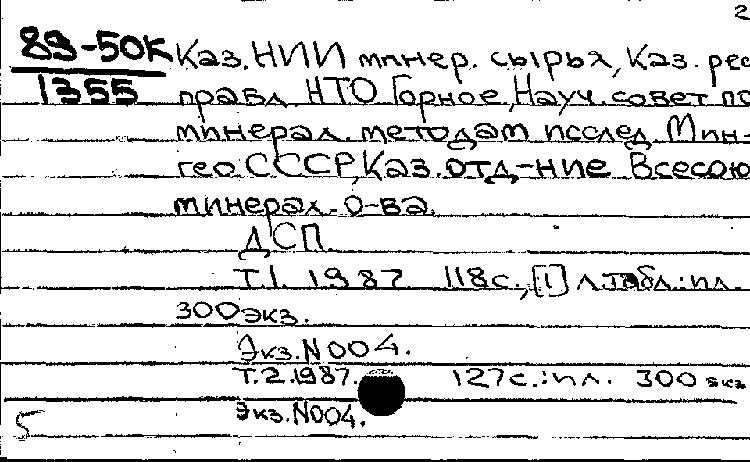 2
89-50К Каз. НИИ минер. сырья, Каз. рес
1355 правл. НТО Горное, Науч. совет по
минерал. методам исслед. Мин-
гео СССР, Каз. отд-ние Всесою
минерал. о-ва.
ДСП.
Т.1. 1987 118с., [1] л. табл.: ил.
300 экз.
Экз. N 004.
Т.2. 1987. 127с.: ил. 300 экз
Экз. N004.
5